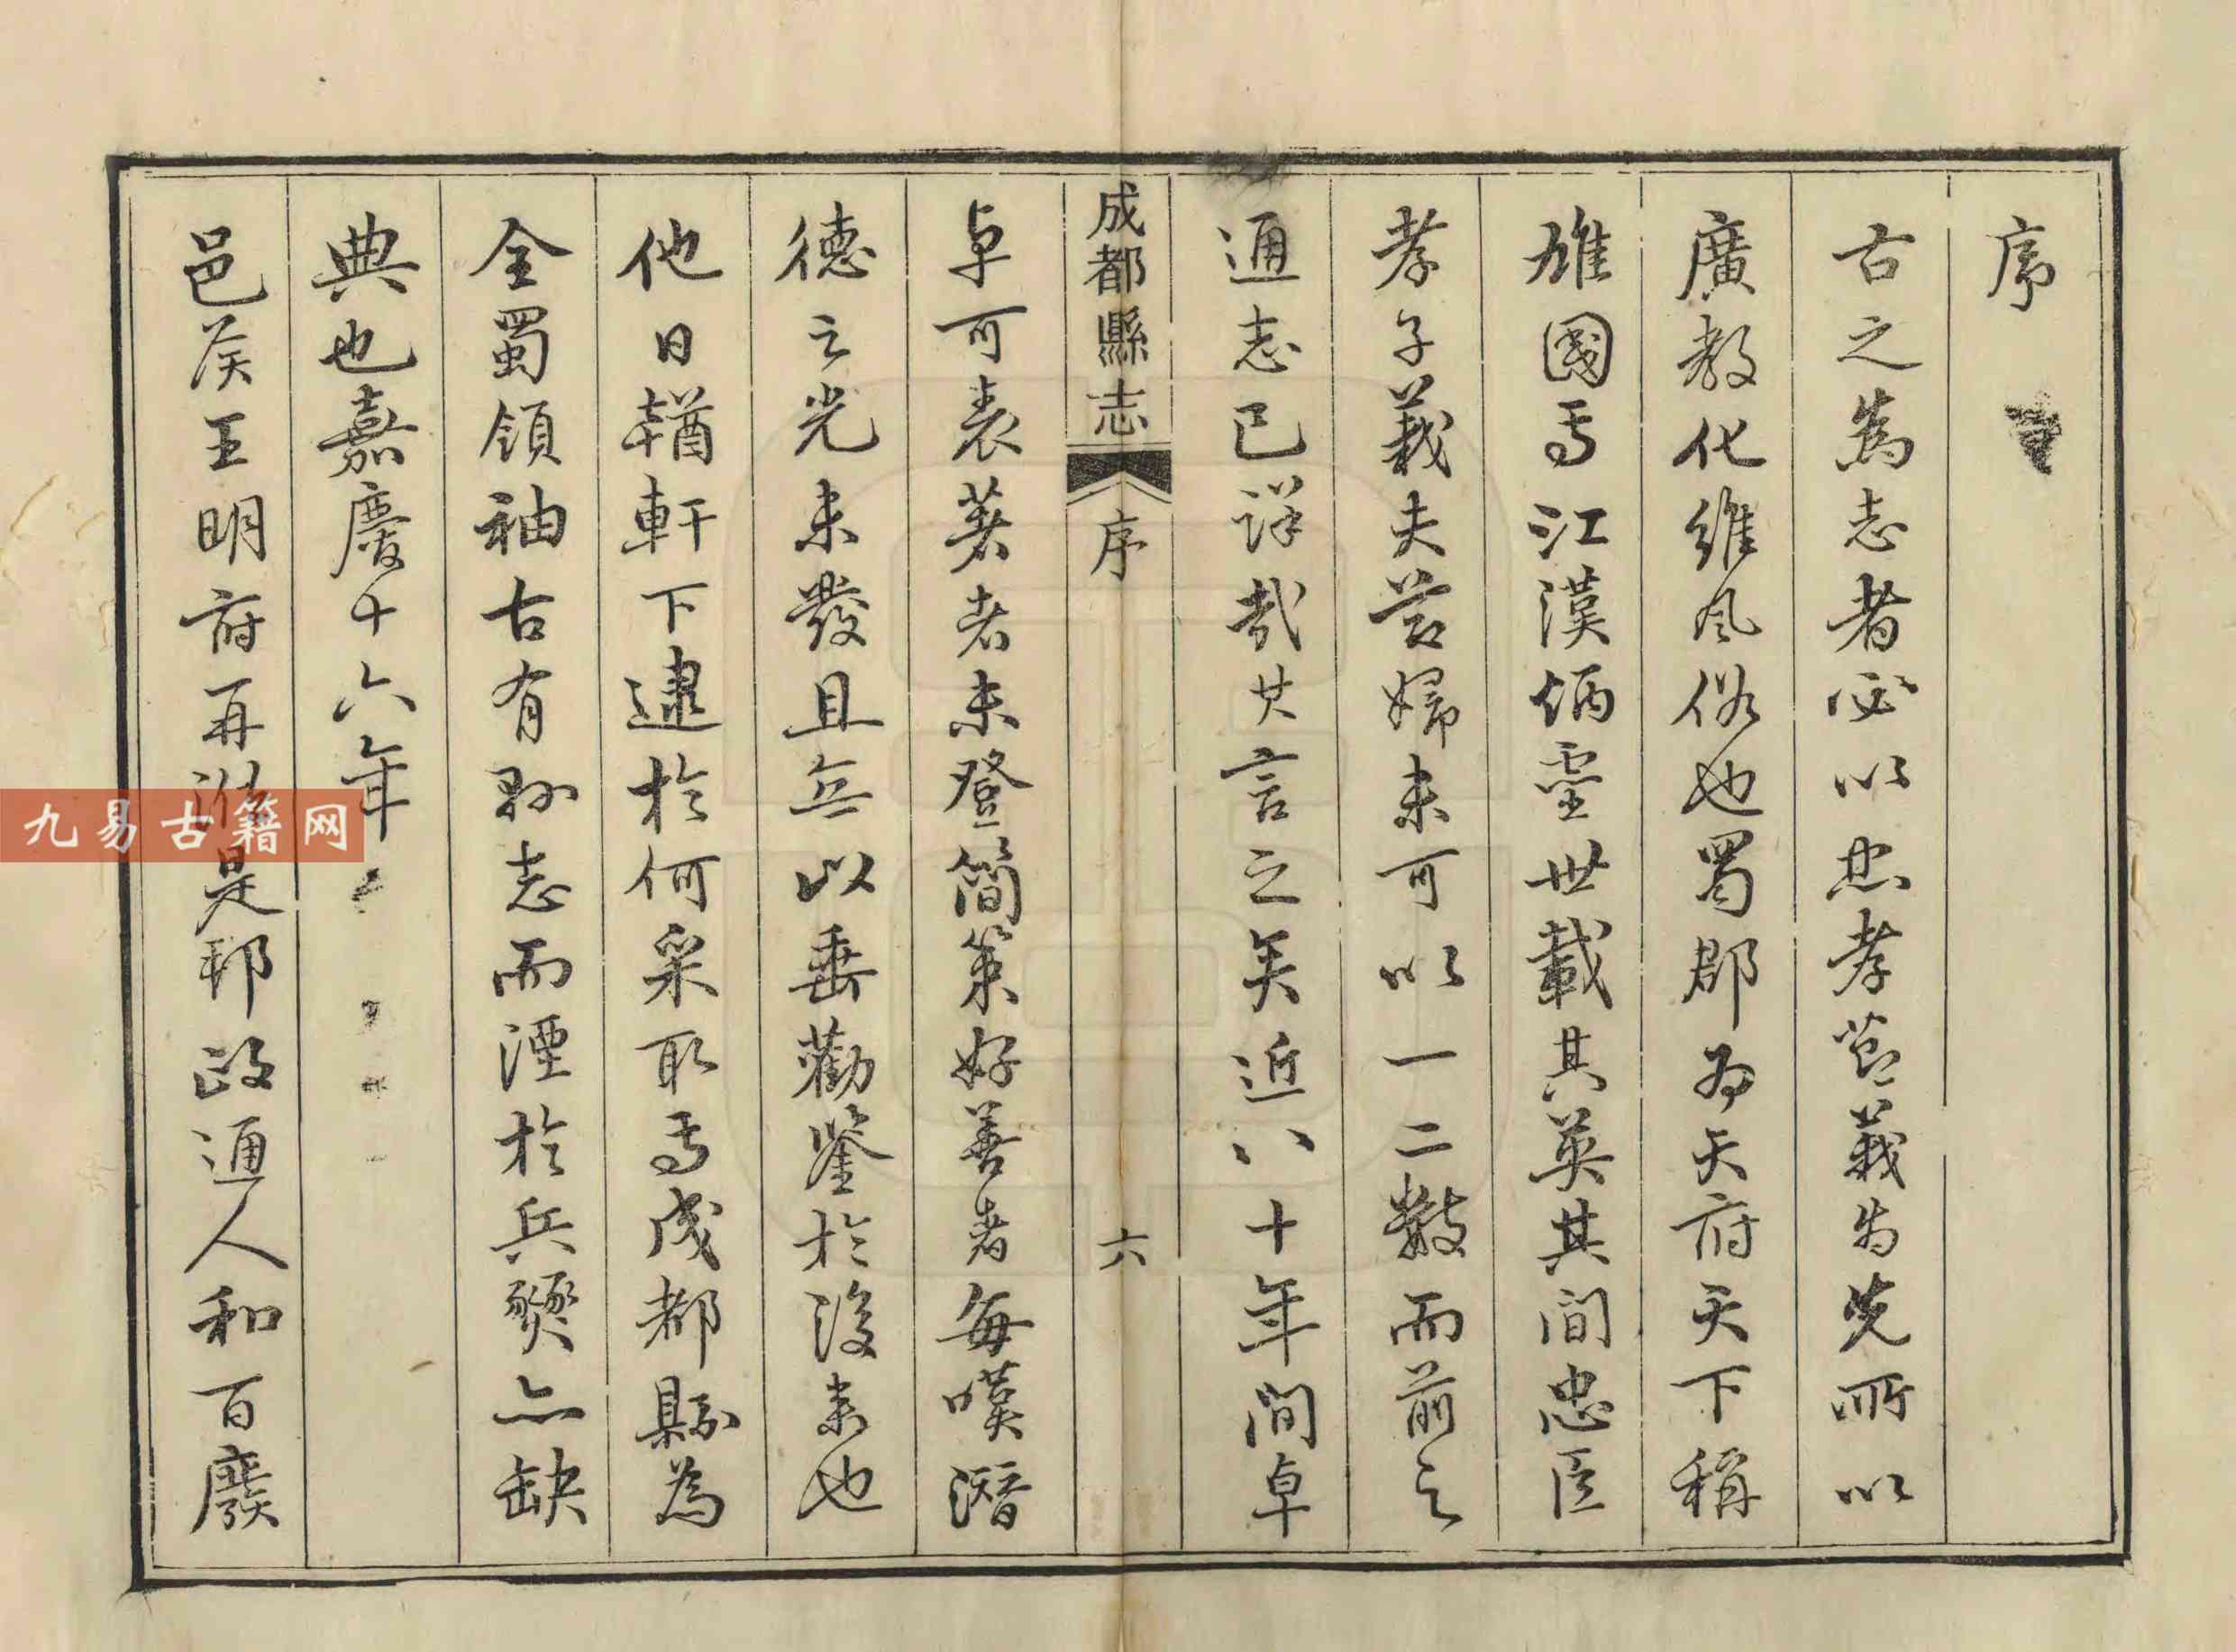 序
古之為志者必以忠孝節義為先所以
廣教化維風俗也蜀郡為天府天下稱
雄國焉江漢炳靈世載其英其間忠臣
孝子義夫節婦未可以一二數而前之
通志已詳哉其言之矣近八十年間卓
成都縣志
序
六
卓可表著者未登簡策好善者每嘆潛
德之光未發且無以垂勸鑒於後來也
他日輶軒下逮於何采取焉成都縣為
全蜀領袖古有縣志而湮於兵燹亦缺
典也嘉慶十六年
邑矦王明府再涖是邦政通人和百廢
九易古籍网